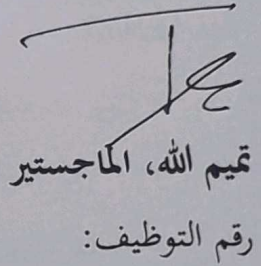 تميم الله، الماجستير
رقم التوظيف: